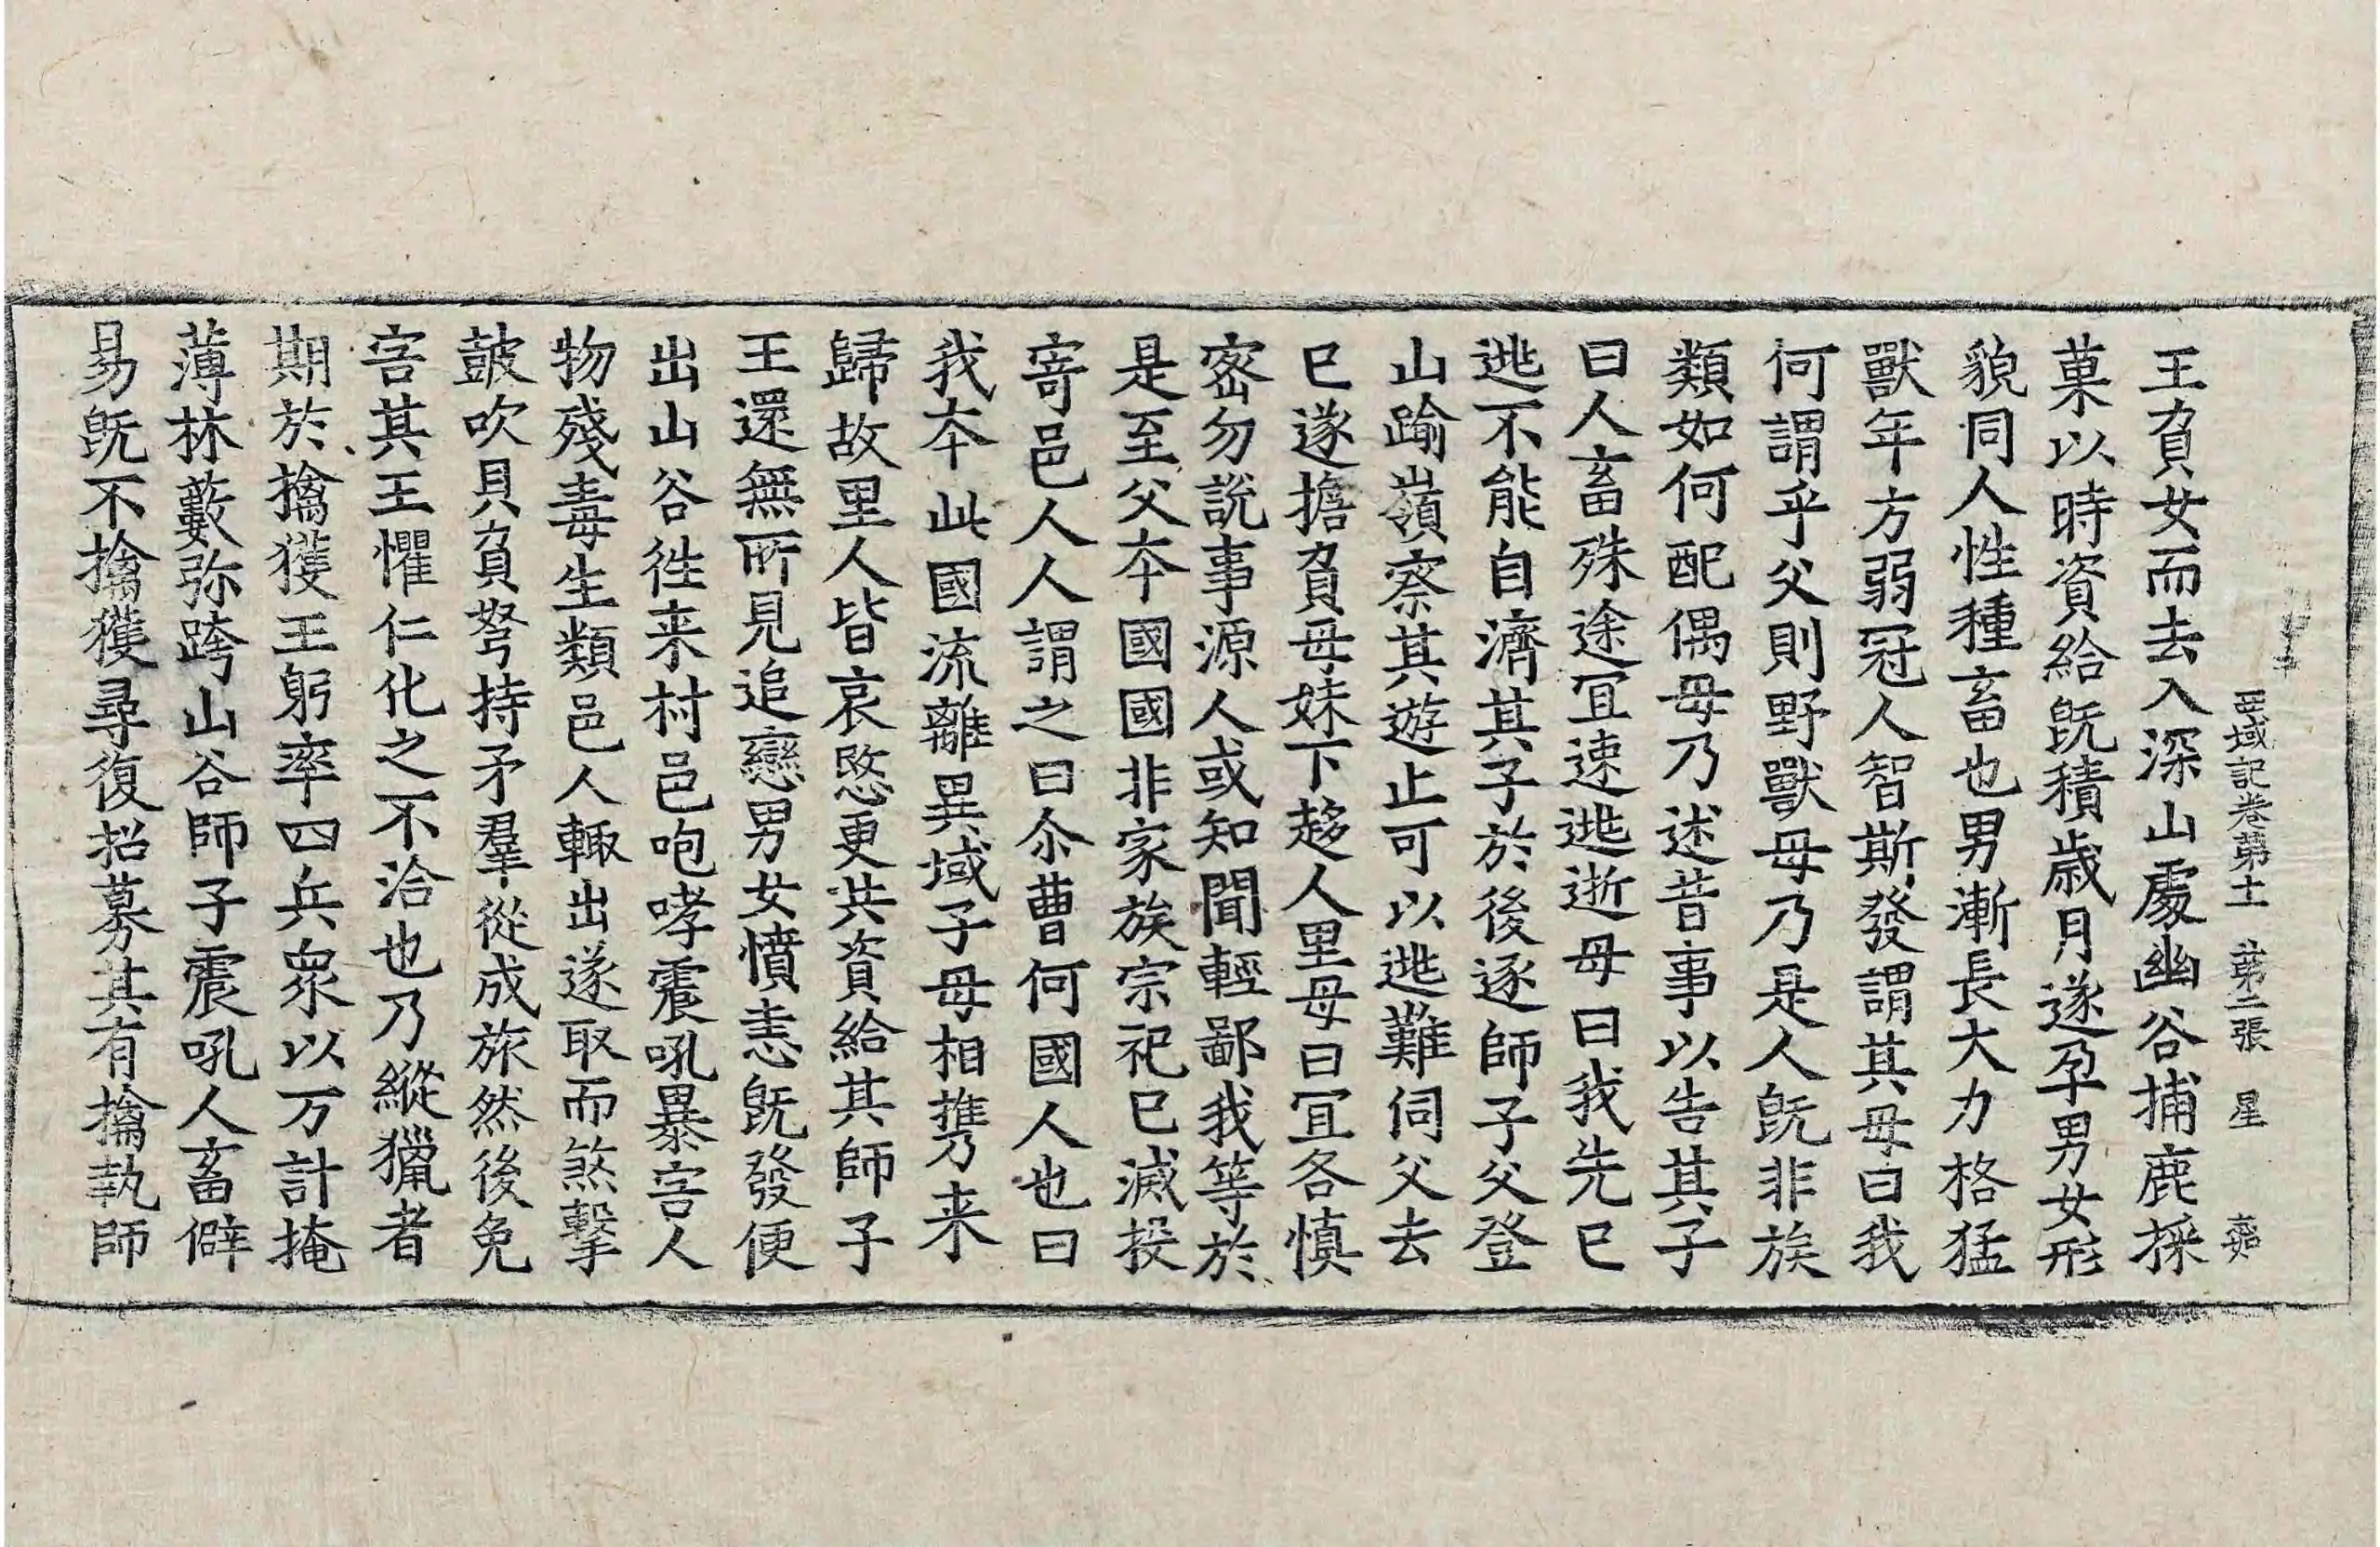 西域記卷第十一　第二張　星
王負女而去入深山處幽谷捕鹿採
菓以時資給旣積歲月遂孕男女形
貌同人性種畜也男漸長大力格猛
獸年方弱冠人智斯發謂其母曰我
何謂乎父則野獸母乃是人旣非族
類如何配偶母乃述昔事以告其子
曰人畜殊途冝速逃逝母曰我先已
逃不能自濟其子於後逐師子父登
山踰嶺察其遊止可以逃難伺父去
已遂擔負母妹下趍人里母曰冝各慎
密勿說事源人或知聞輕鄙我等於
是至父夲國國非家族宗祀已滅投
寄邑人人謂之曰尒曹何國人也曰
我夲此國流離異域子母相携来
歸故里人皆哀愍更共資給其師子
王還無所見追戀男女憤恚旣發便
出山谷徃来村邑咆哮震吼暴害人
物殘毒生類邑人輙出遂取而煞擊
皷吹貝負弩持矛羣從成旅然後免
害其王懼仁化之不洽也乃縱獵者
期於擒獲王躬率四兵衆以万計掩
薄林藪弥跨山谷師子震吼人畜僻
易旣不擒獲尋復招募其有擒執師